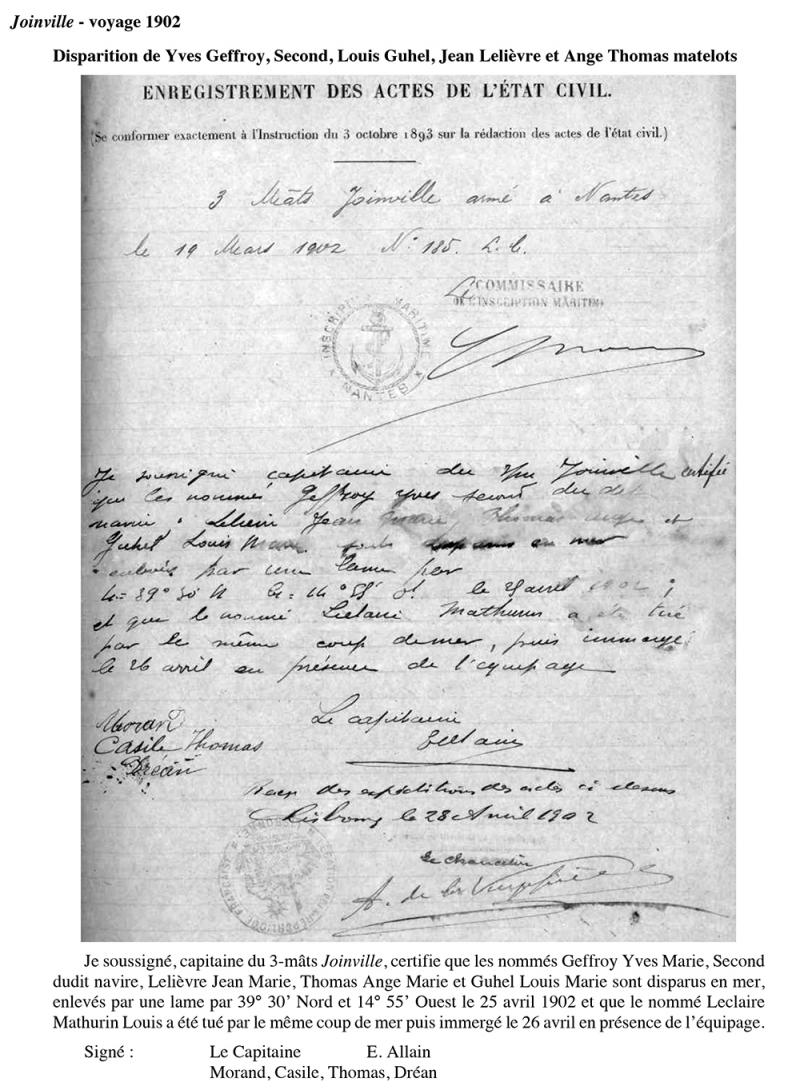 Joinville - voyage 1902
Disparition de Yves Geffroy, Second, Louis Guhel, Jean Lelièvre et Ange Thomas matelots
ENREGISTREMENT DES ACTES DE L'ÉTAT CIVIL.
(Se conformer exactement à l'Instruction du 3 octobre 1893 sur la rédaction des actes de l'état civil.)
3 Mâts Joinville armé à Nantes
le 19 Mars 1902 N° 185. L. C.
Le COMMISSAIRE
DE L'INSCRIPTION MARITIME
INSCRIPTION MARITIME
NANTES
Je soussigné capitaine du Joinville certifie
que les nommés Geffroy Yves second du dit
navire, Lelievre Jean Marie, Thomas Ange et
Guhel Louis Marie sont disparus en mer
enlevés par une lame par
L = 39° 30' N G = 14° 55' O. le 25 avril 1902 ;
et que le nommé Leclaire Mathurin a été tué
par le même coup de mer, puis immergé
le 26 avril en présence de l'équipage
Morand
Le capitaine
Casile Thomas
E Allain
Dréan
Reçu des expéditions des actes ci dessus
Lisbonne le 28 Avril 1902
Le chancelier
A. de la
Je soussigné, capitaine du 3-mâts Joinville, certifie que les nommés Geffroy Yves Marie, Second
dudit navire, Lelièvre Jean Marie, Thomas Ange Marie et Guhel Louis Marie sont disparus en mer,
enlevés par une lame par 39° 30' Nord et 14° 55' Ouest le 25 avril 1902 et que le nommé Leclaire
Mathurin Louis a été tué par le même coup de mer puis immergé le 26 avril en présence de l'équipage.
Signé : Le Capitaine E. Allain
Morand, Casile, Thomas, Dréan